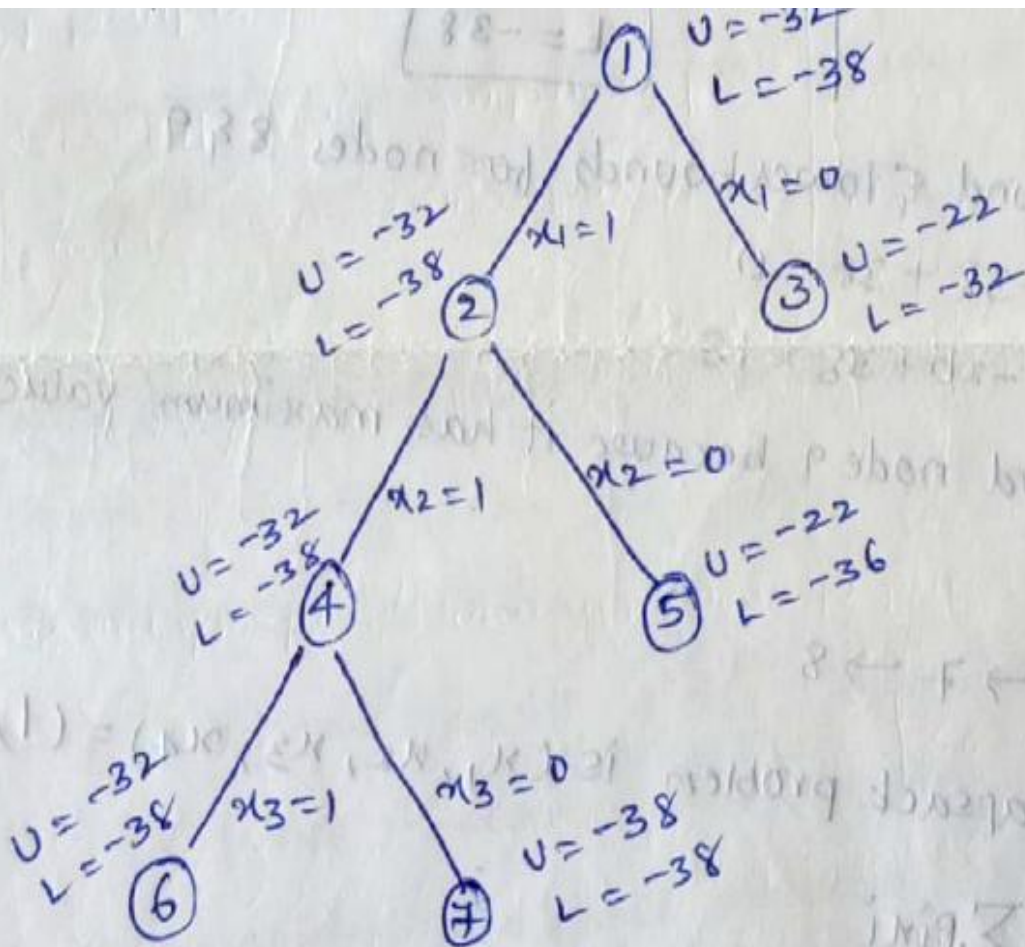 1
U = -32
L = -38
x1 = 1
x1 = 0
U = -32
L = -38
2
3
U = -22
L = -32
x2 = 1
x2 = 0
U = -32
L = -38
4
5
U = -22
L = -36
x3 = 1
x3 = 0
U = -32
L = -38
6
7
U = -38
L = -38